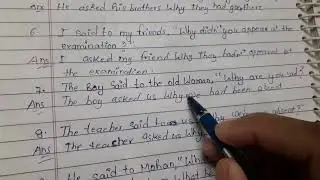 Ans He asked his brothers why they had
6. I said to my friends, "Why didn't you appear at the
examination?"
Ans I asked my friend why they hadn't appeared at
the examination.
7. The Boy said to the old woman, "Why are you sad?
Ans The boy asked us why had been absent
8. The teacher said to us, absent?
Ans The teacher asked us why
said to Mohan,